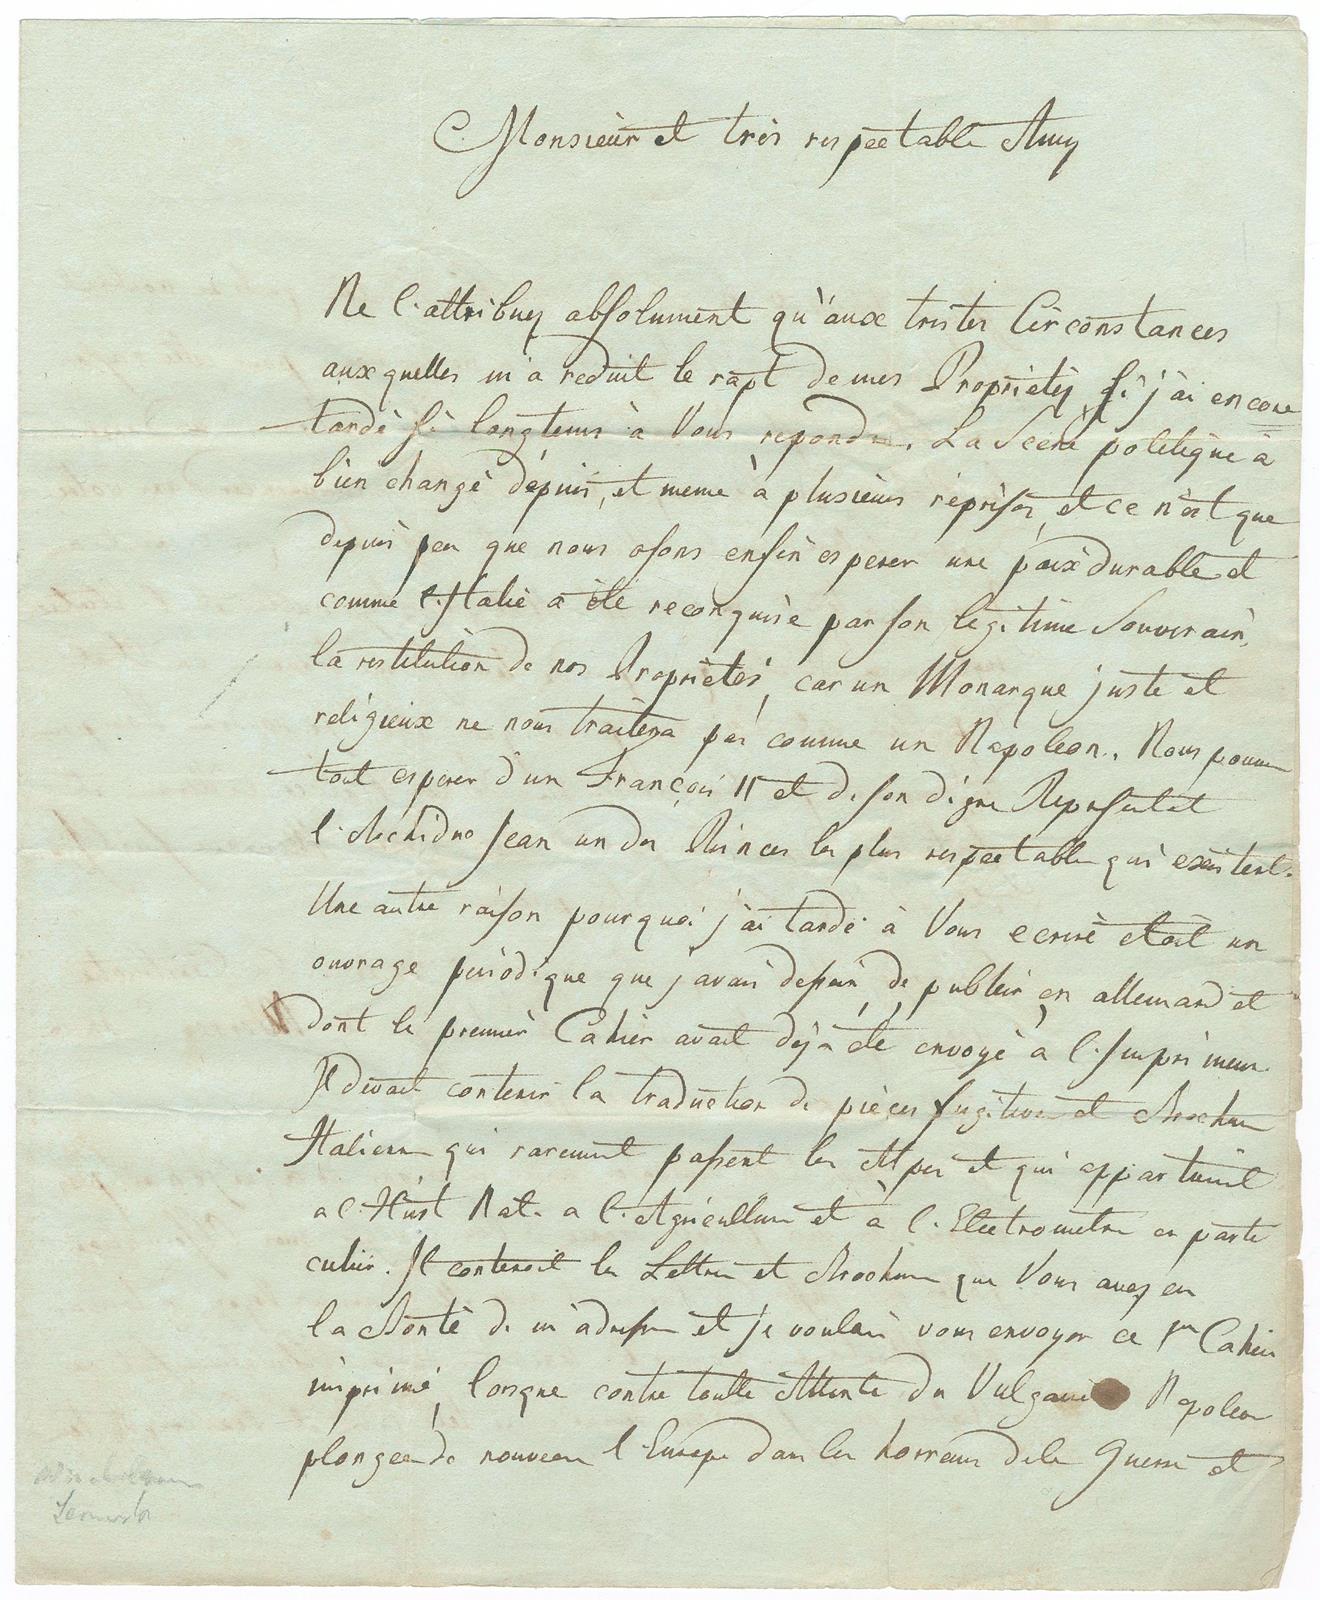 Monsieur et très respectable Amy
Ne l'attribuez absolument qu'aux tristes Circonstances
auxquelles m'a reduit le rapt de mes Proprietés si j'ai encore
tardé si longtems à Vous repondre. La Scene politique à
bien changé dépuis, et meme à plusieurs reprises, et ce n'est que
depuis peu que nous osons enfin esperer une paix durable et
comme l'Italie a été reconquise par son legitime Souverain,
la restitution de nos Proprietés, car un Monarque juste et
religieux ne nous traitera pas comme un Napoleon. Nous pouvons
tout esperer d'un François II et de son digne Represetat
l'Archiduc Jean un des Princes les plus respectables qui existent.
Une autre raison pourquoi j'ai tardé à Vous ecrire etoit un
ouvrage periodique que j'avais dessein de publier en allemand et
dont le premier Cahier avait déja été envoyé à l'Imprimeur
Il devait contenir la traduction de pièces fugitives et Brochures
Italiens qui rarement passent les Alpes et qui appartiennent
a l'Hist Nat. a l'Agriculture et à l'Electrometrie en parti
culier. Il contenoit les Lettres et Brochures que Vous avez eu
la Bonté de m'adresser et je voulais vous envoyer ce 1er Cahier
imprimé, lorsque contre toutte Attente du Vulgaire Napoleon
plongea de nouveau l'Europe dans les horreurs de la Guerre et